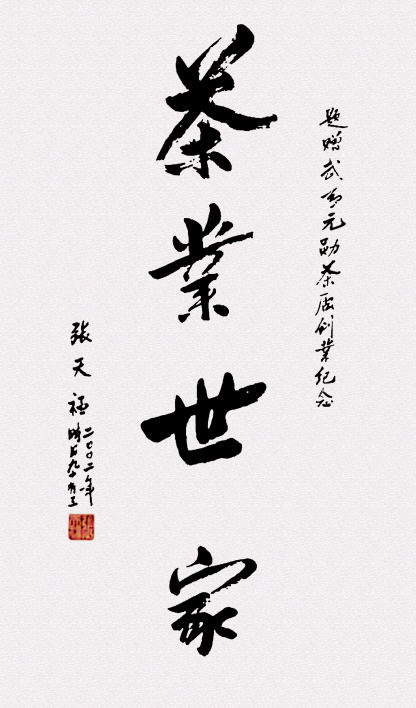 题赠武夷元勋茶廠创業纪念
茶業世家
張天福
二〇〇二年
時年九十有三